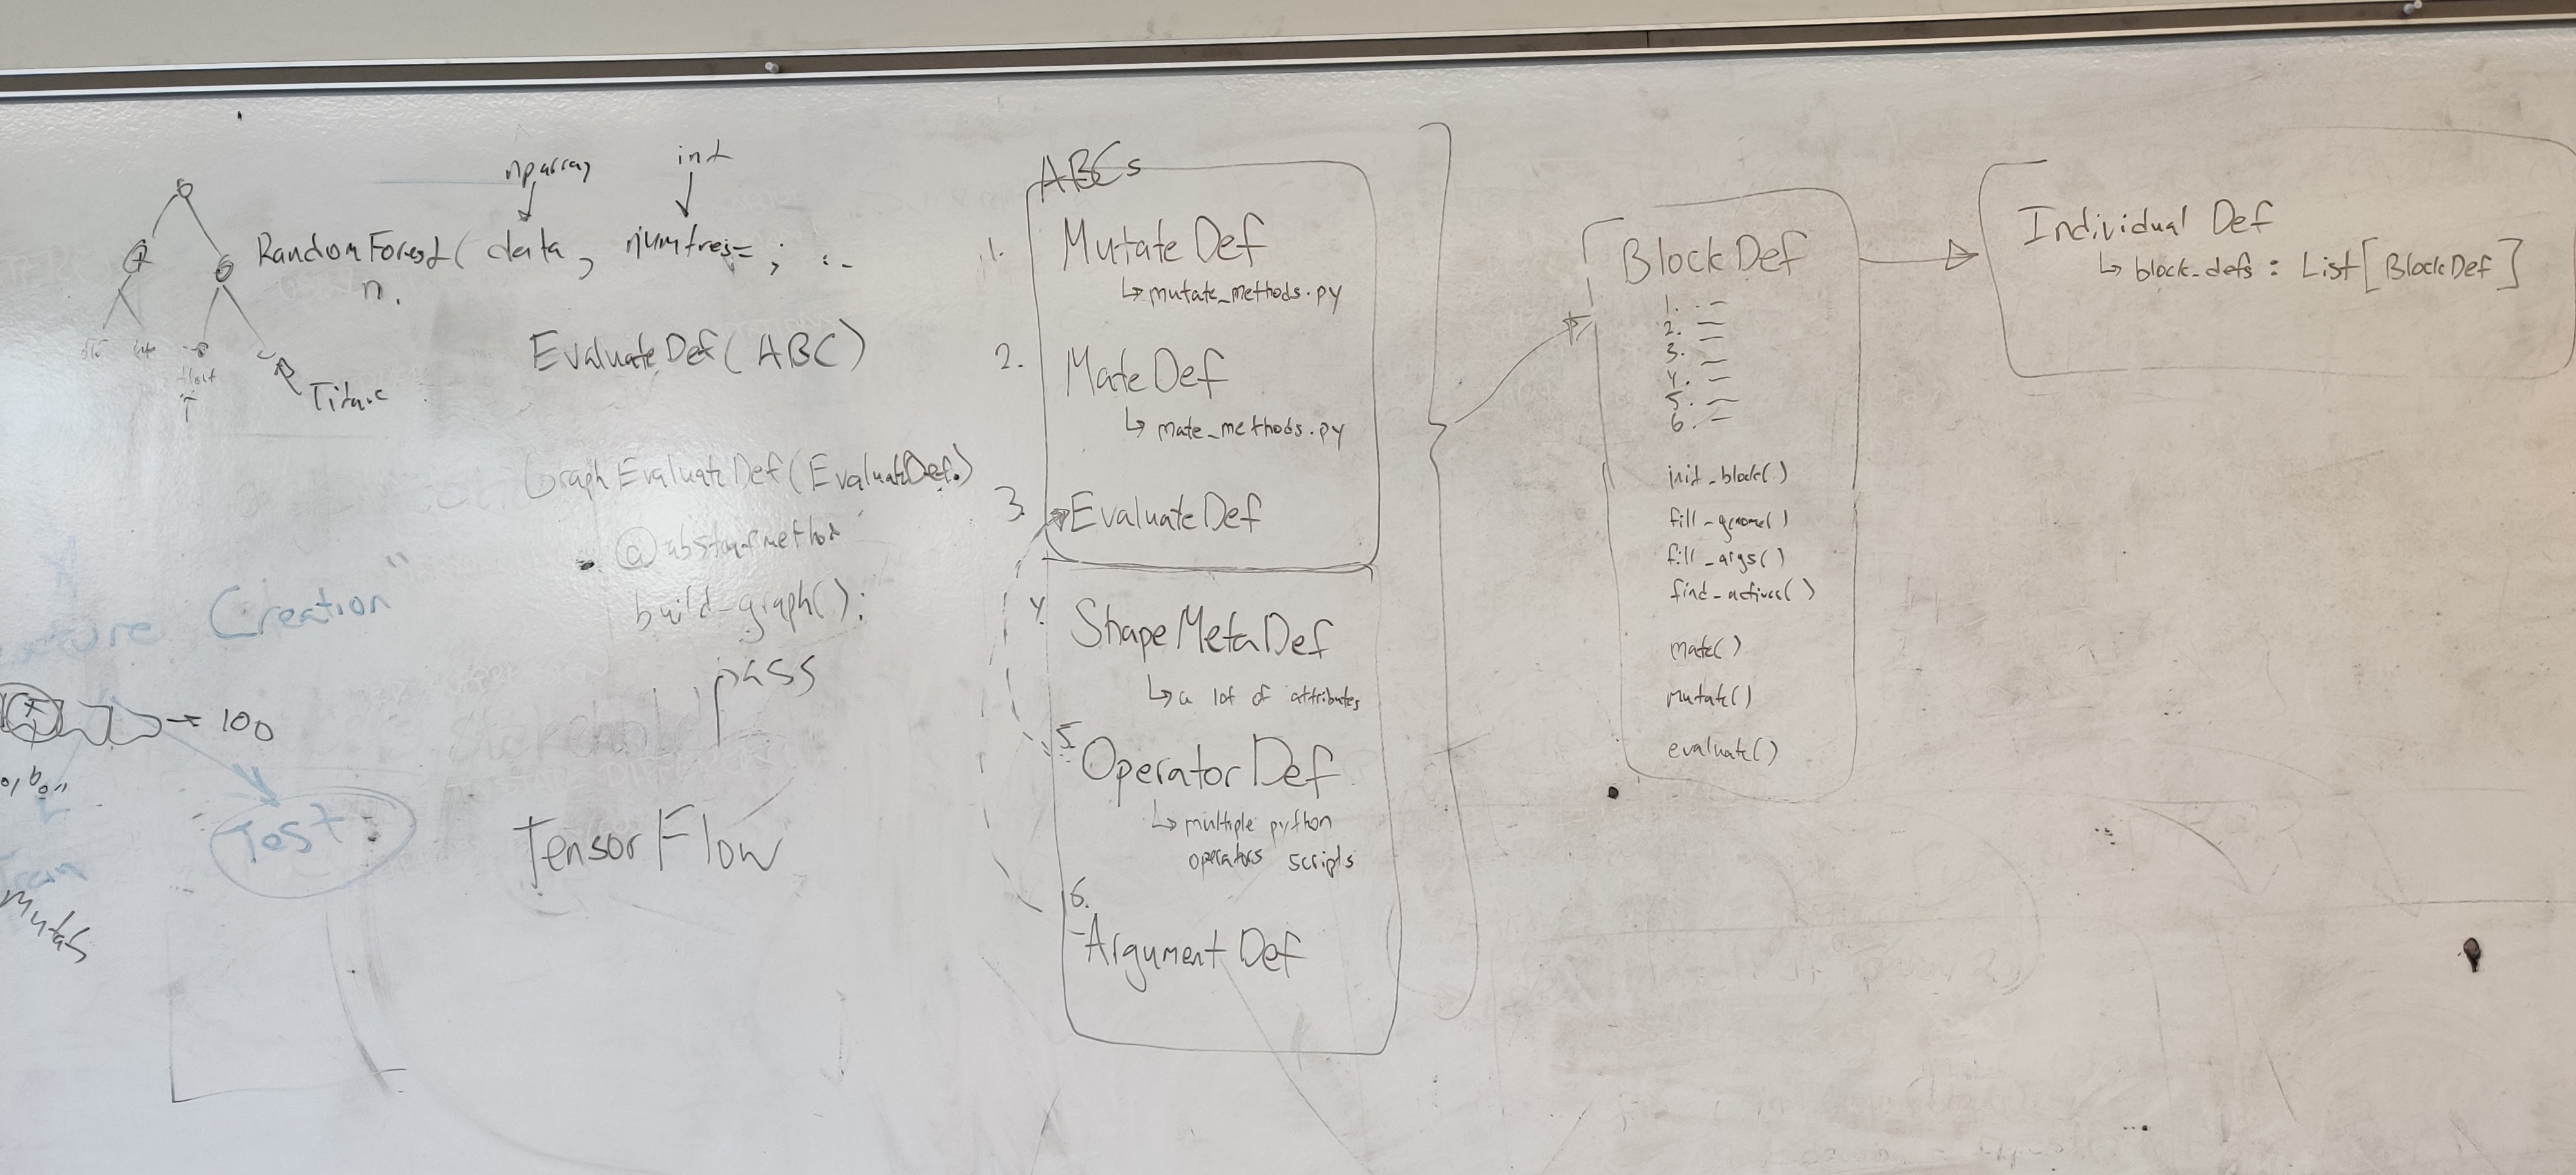 nparray
int
RandomForest( data, numtrees= , ..
n.
Titanic
EvaluateDef(ABC)
GraphEvaluateDef(EvaluateDef)
@abstractmethod
build-graph():
pass
TensorFlow
Creation"
100
Test
Train
Mutate
ABCs
1. MutateDef
↳ mutate_methods.py
2. MateDef
↳ mate_methods.py
3. EvaluateDef
4. ShapeMetaDef
↳ a lot of attributes
5. OperatorDef
↳ multiple python
operators scripts
6. ArgumentDef
BlockDef
1. —
2. —
3. —
4. —
5. —
6. —
init_block()
fill_genome()
fill_args()
find_actives()
mate()
mutate()
evaluate()
Individual Def
↳ block_defs : List[BlockDef]